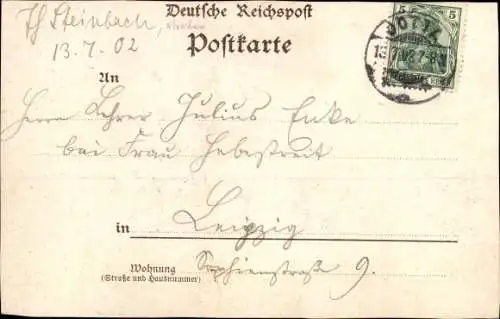 Th Steinbach,
13.7.02
Deutsche Reichspost
Postkarte
5 5
An
Herrn Lehrer Julius Enke
bei Frau Hebestreit
in Leipzig
Wohnung
(Straße und Hausnummer)
Sophienstraße 9.